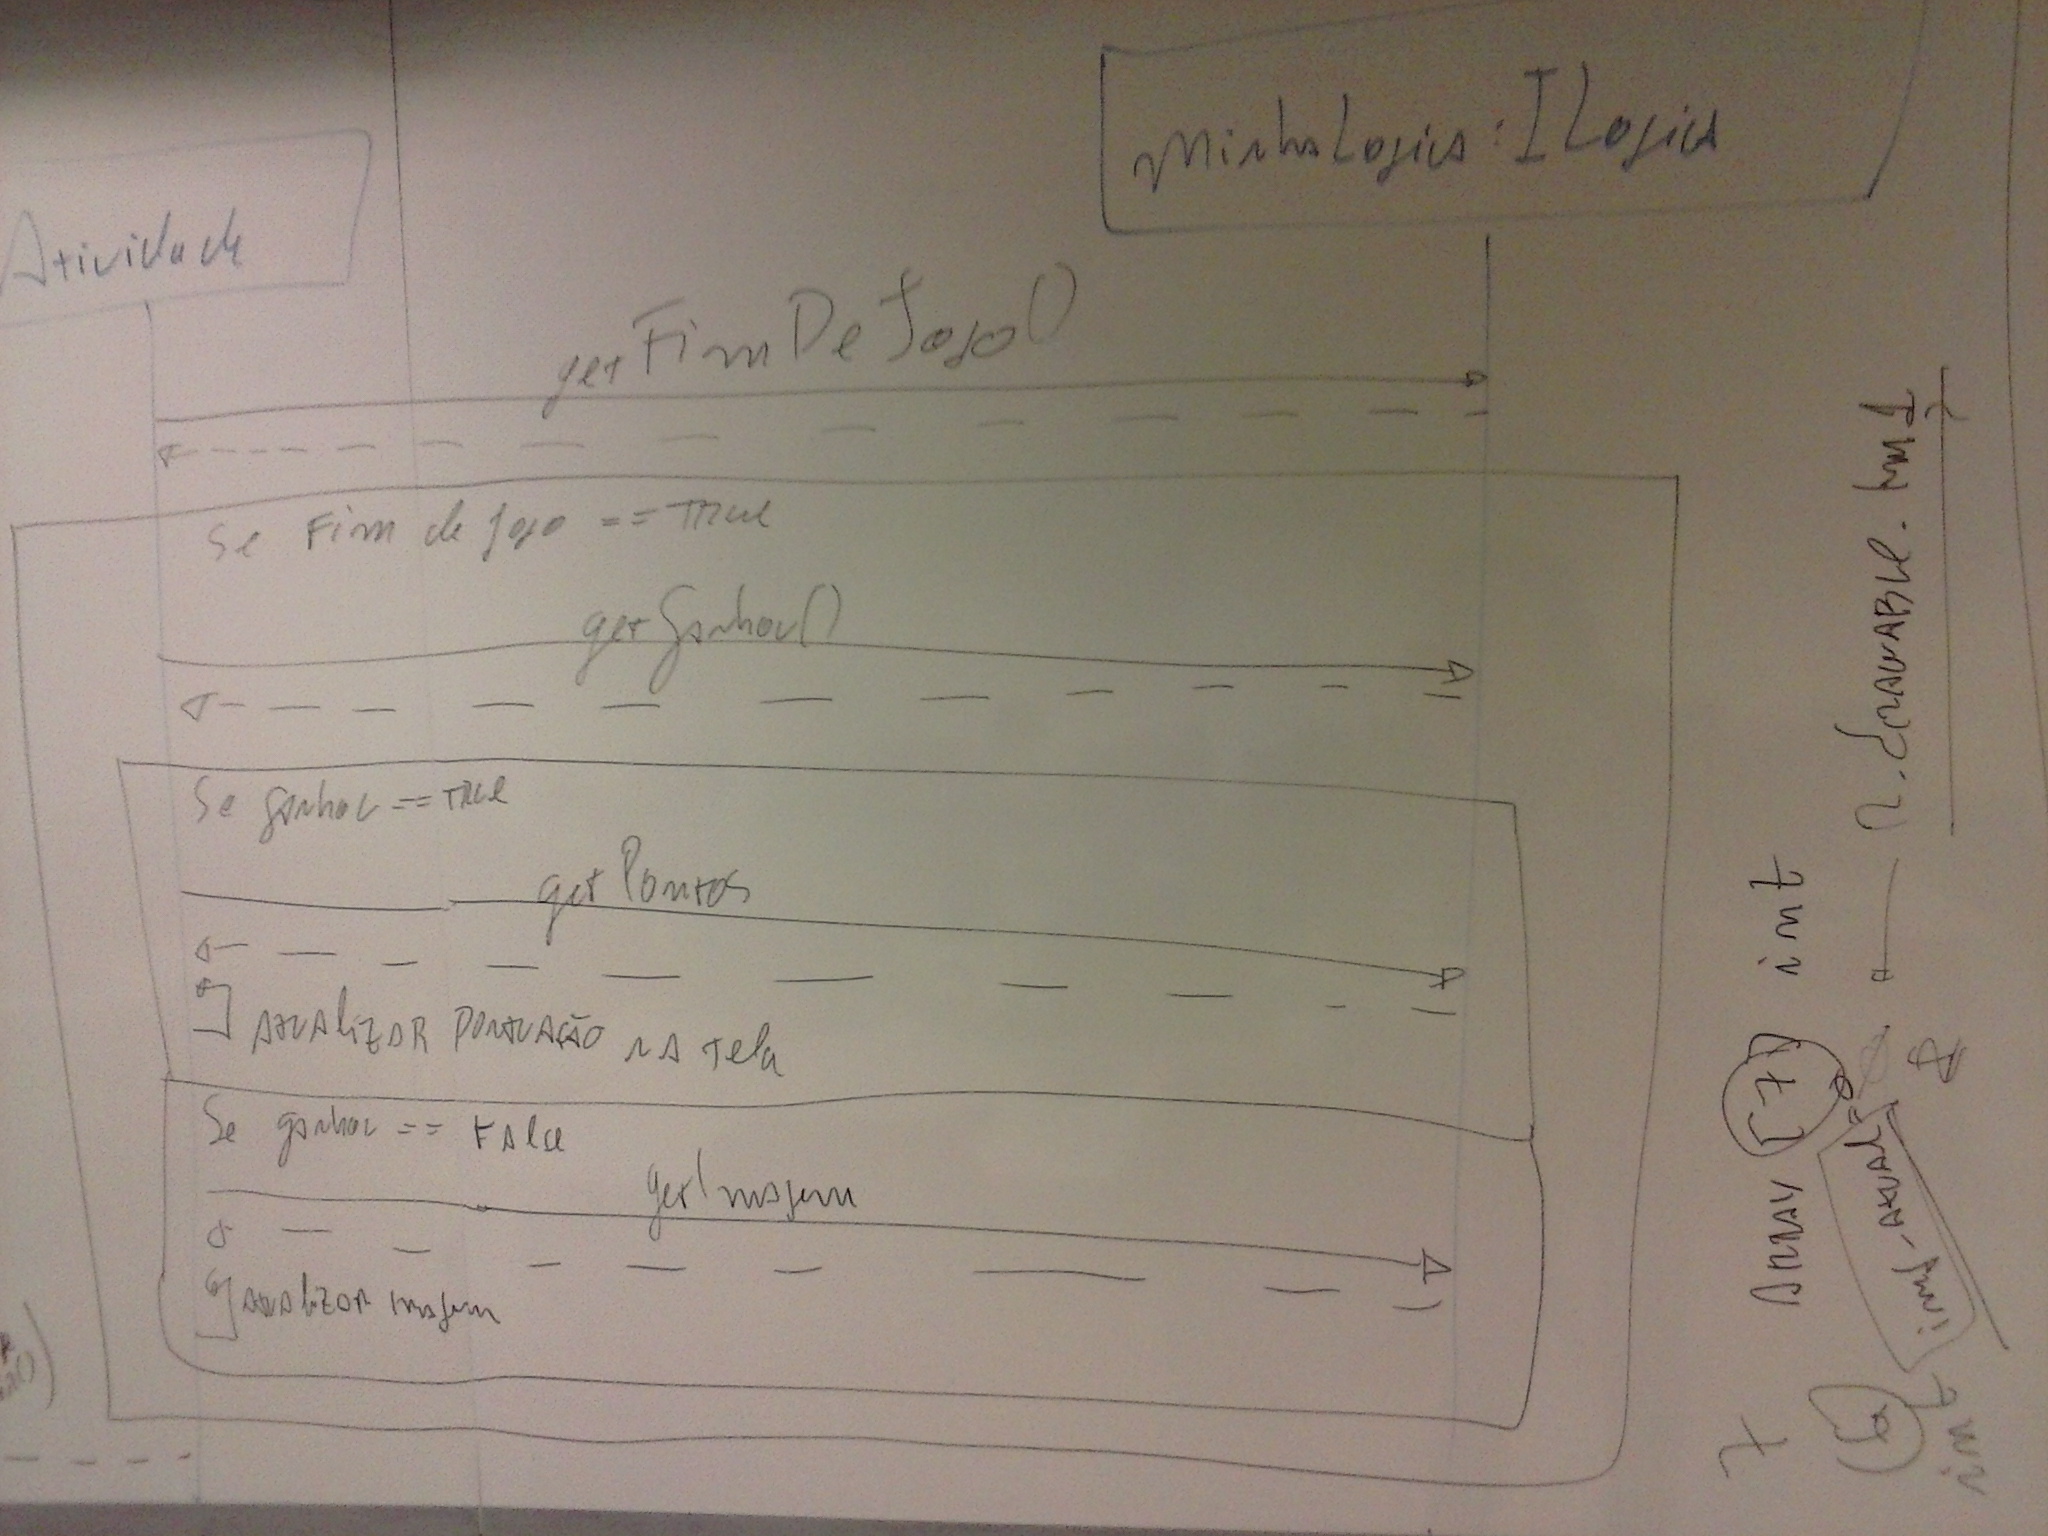 Atividade
MinhaLogica : ILogica
getFimDeJogo()
Se Fim de jogo == True
getGanhou()
Se ganhou == True
getPontos
Atualizar pontuação na tela
Se ganhou == False
getImagem
Atualizar imagem
Array [7] int
img_atual =
r.drawable.img1
7
int